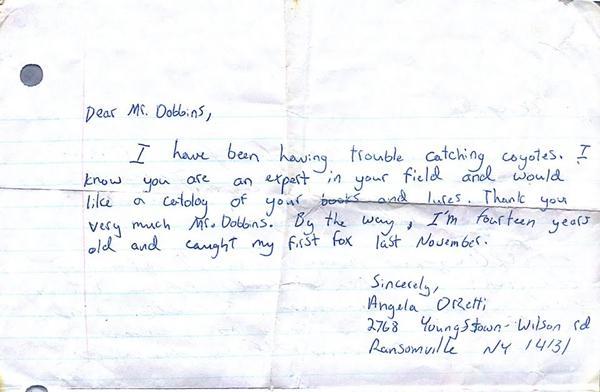 Dear Mr. Dobbins,
I have been having trouble catching coyotes. I
know you are an expert in your field and would
like a catolog of your books and lures. Thank you
very much Mr. Dobbins. By the way, I'm fourteen years
old and caught my first fox last November.
Sincerely,
Angela
2768 Youngstown-Wilson rd
Ransomville NY 14131